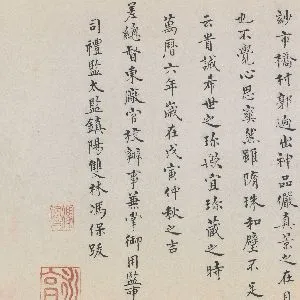 妙市橋村郭迥出神品儼真景之在目
也不覺心思爽然雖隋珠和璧不足
云貴誠希世之珎歟宜珎藏之時
萬曆六年歲在戊寅仲秋之吉
差總督東廠官校辦事兼掌御用監事
司禮監太監鎮陽雙林馮保跋